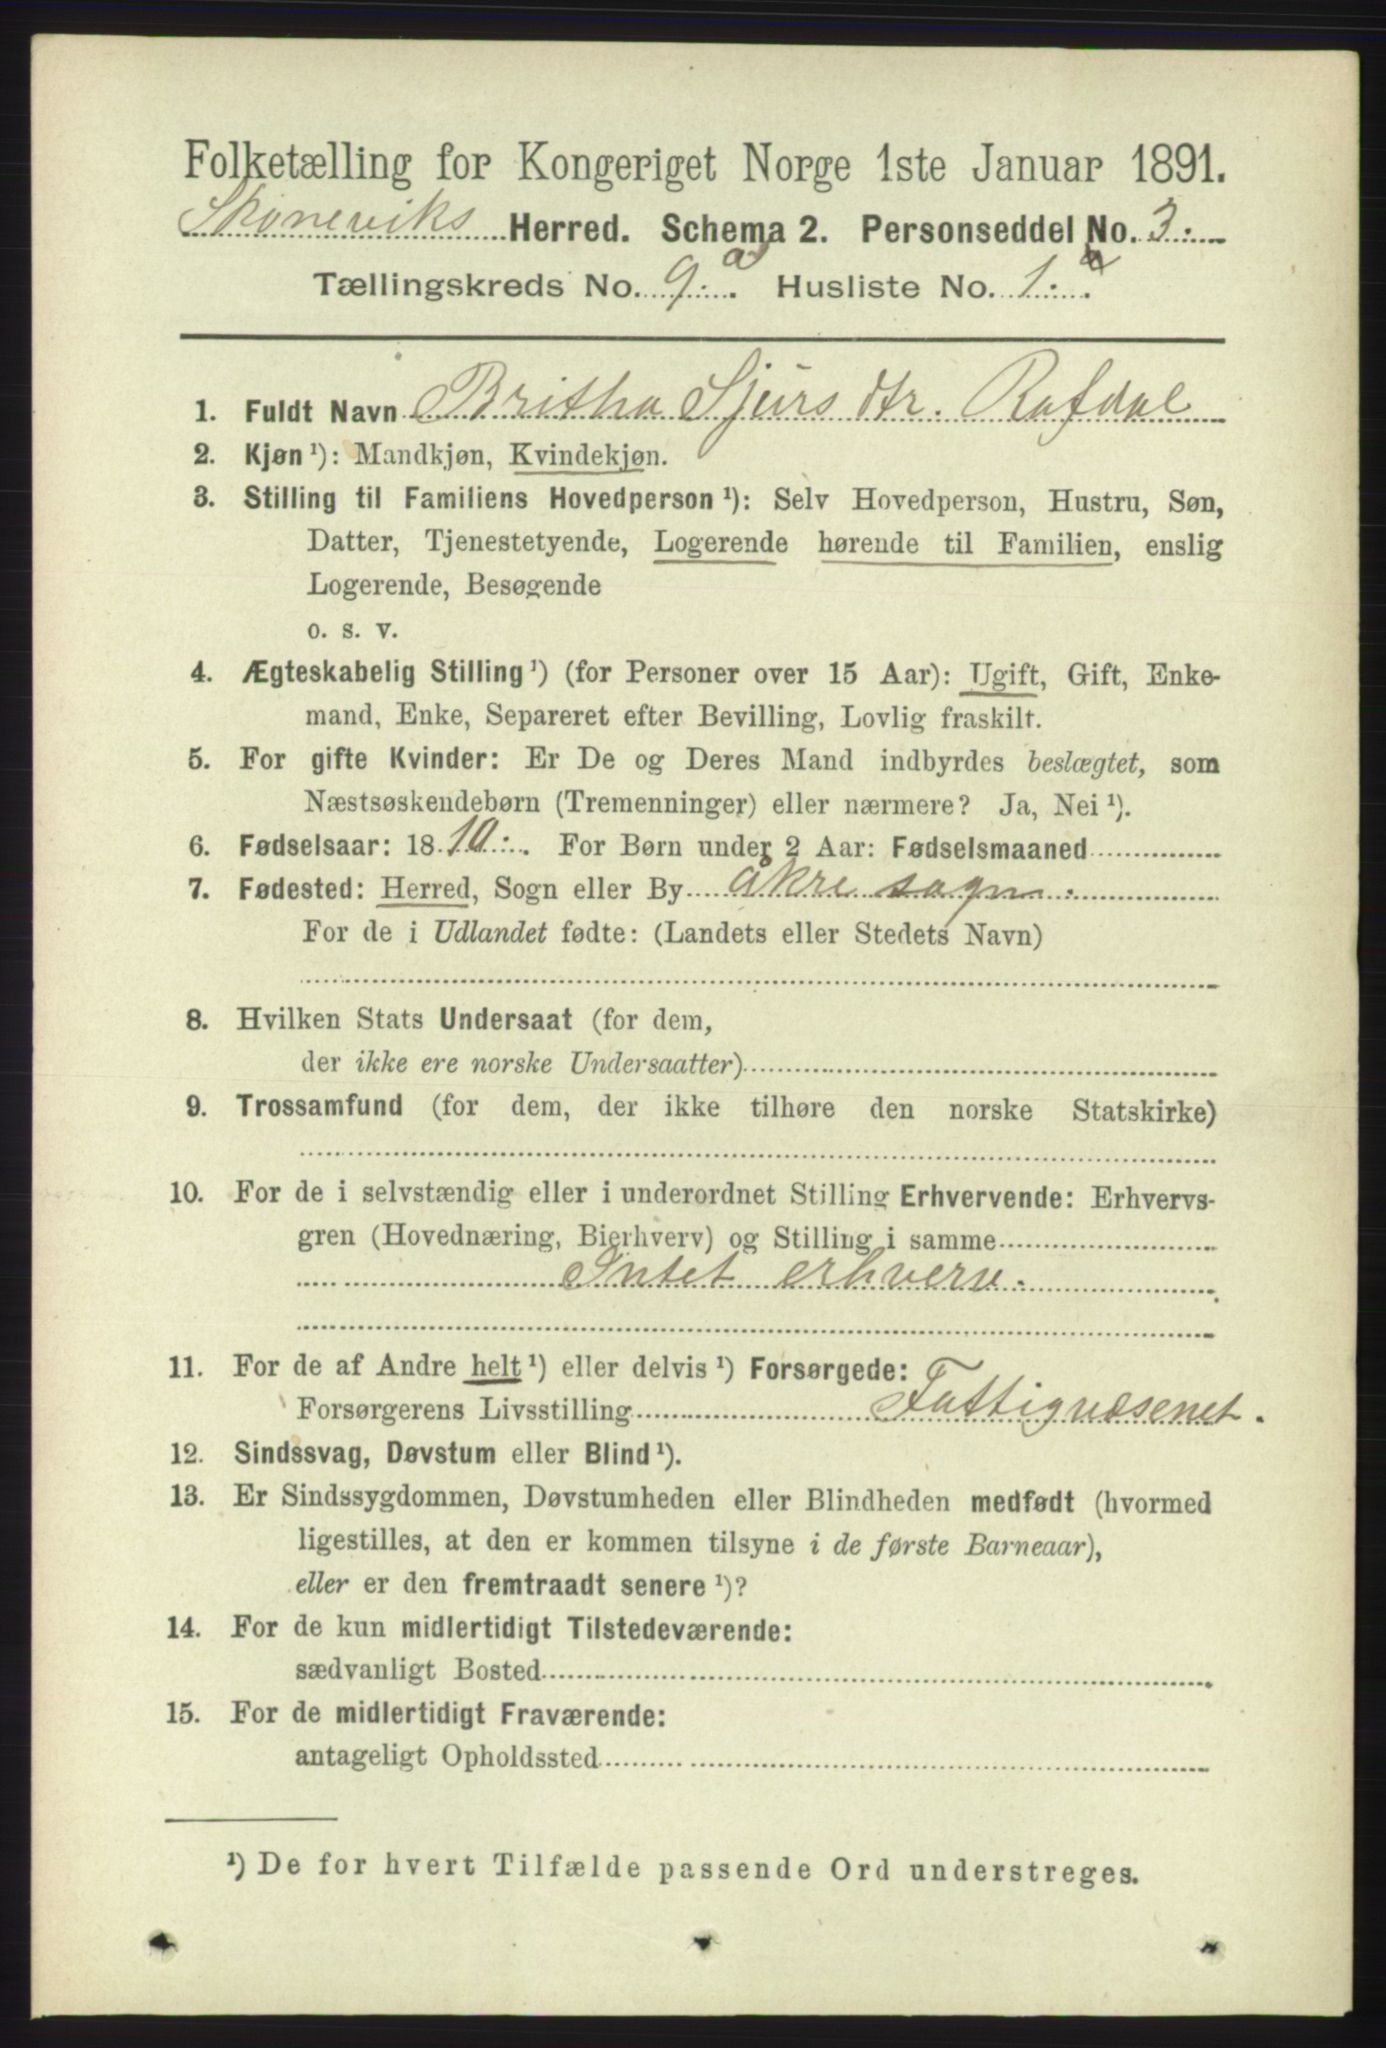 Folketælling for Kongeriget Norge 1ste Januar 1891.
Skoneviks Herred. Schema 2. Personseddel No. 3.
Tællingskreds No. 9.a Husliste No. 1.a
1. Fuldt Navn Britha Sjursdtr. Rafdal
2. Kjøn ¹): Mandkjøn, Kvindekjøn.
3. Stilling til Familiens Hovedperson ¹): Selv Hovedperson, Hustru, Søn,
Datter, Tjenestetyende, Logerende hørende til Familien, enslig
Logerende, Besøgende
o. s. v.
4. Ægteskabelig Stilling ¹) (for Personer over 15 Aar): Ugift, Gift, Enke-
mand, Enke, Separeret efter Bevilling, Lovlig fraskilt.
5. For gifte Kvinder: Er De og Deres Mand indbyrdes beslægtet, som
Næstsøskendebørn (Tremenninger) eller nærmere? Ja, Nei ¹).
6. Fødselsaar: 1810. For Børn under 2 Aar: Fødselsmaaned
7. Fødested: Herred, Sogn eller By åkre sogn.
For de i Udlandet fødte: (Landets eller Stedets Navn)
8. Hvilken Stats Undersaat (for dem,
der ikke ere norske Undersaatter)
9. Trossamfund (for dem, der ikke tilhøre den norske Statskirke)
10. For de i selvstændig eller i underordnet Stilling Erhvervende: Erhvervs-
gren (Hovednæring, Bierhverv) og Stilling i samme
Intet erhverv.
11. For de af Andre helt ¹) eller delvis ¹) Forsørgede:
Forsørgerens Livsstilling Fattigvæsenet.
12. Sindssvag, Døvstum eller Blind ¹).
13. Er Sindssygdommen, Døvstumheden eller Blindheden medfødt (hvormed
ligestilles, at den er kommen tilsyne i de første Barneaar),
eller er den fremtraadt senere ¹)?
14. For de kun midlertidigt Tilstedeværende:
sædvanligt Bosted
15. For de midlertidigt Fraværende:
antageligt Opholdssted
¹) De for hvert Tilfælde passende Ord understreges.